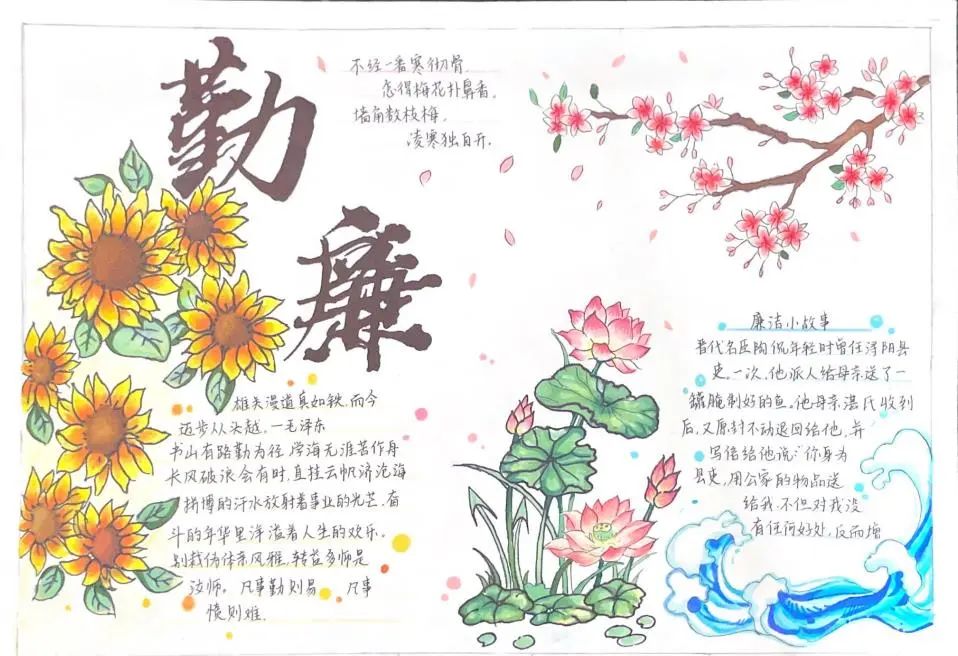 勤
廉
不经一番寒彻骨
怎得梅花扑鼻香。
墙角数枝梅,
凌寒独自开.
雄关漫道真如铁,而今
迈步从头越,—毛泽东
书山有路勤为径,学海无涯苦作舟
长风破浪会有时,直挂云帆济沧海
拼博的汗水放射着事业的光芒,奋
斗的年华里洋溢着人生的欢乐。
别栽伪体亲风雅,转益多师是
汝师。凡事勤则易 凡事
惰则难.
廉洁小故事
晋代名臣陶侃年轻时曾任浔阳县
吏.一次,他派人给母亲送了一
罐腌制好的鱼.他母亲湛氏收到
后,又原封不动退回给他,并
写信给他说:“你身为
县吏,用公家的物品送
给我,不但对我没
有任何好处,反而增